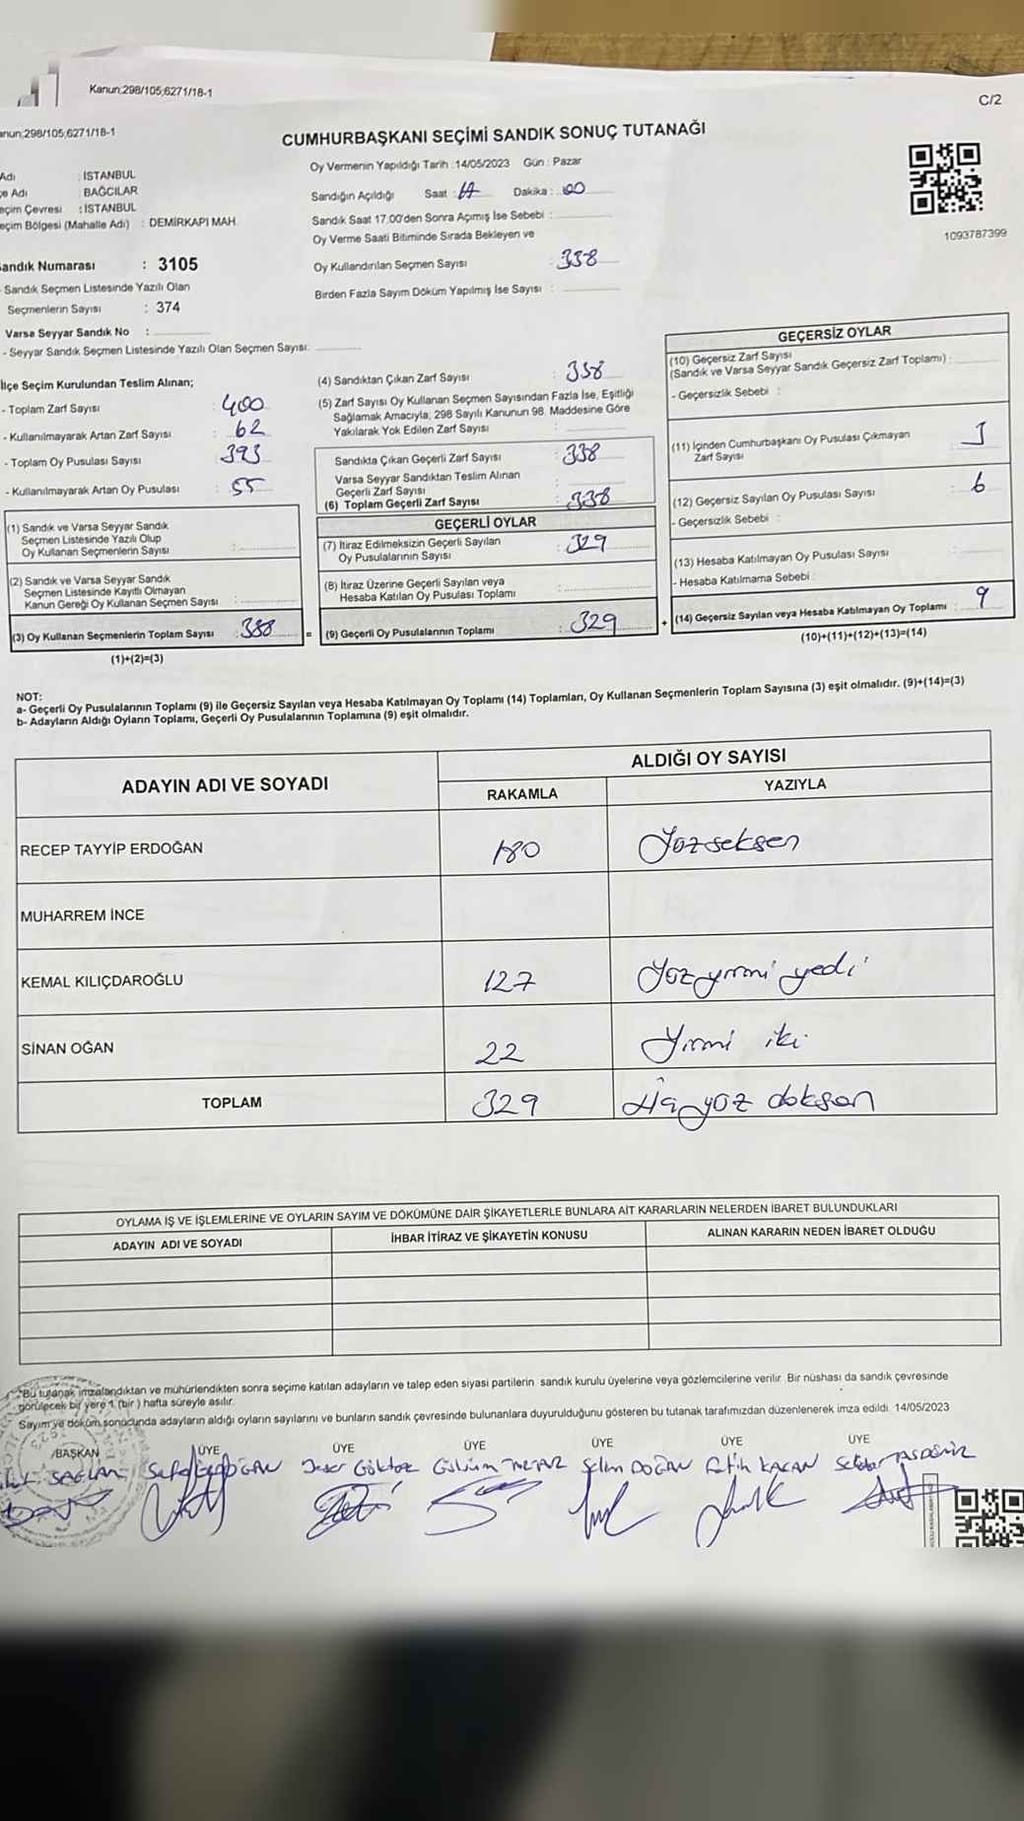 Kanun;298/105;6271/18-1
C/2
anun;298/105;6271/18-1
CUMHURBAŞKANI SEÇİMİ SANDIK SONUÇ TUTANAĞI
Adı : İSTANBUL
çe Adı : BAĞCILAR
eçim Çevresi : İSTANBUL
eçim Bölgesi (Mahalle Adı) : DEMİRKAPI MAH.
andık Numarası : 3105
- Sandık Seçmen Listesinde Yazılı Olan
Seçmenlerin Sayısı : 374
Varsa Seyyar Sandık No :
- Seyyar Sandık Seçmen Listesinde Yazılı Olan Seçmen Sayısı:
Oy Vermenin Yapıldığı Tarih : 14/05/2023 Gün : Pazar
Sandığın Açıldığı Saat : 17 Dakika : 00
Sandık Saat 17.00'den Sonra Açımış İse Sebebi :
Oy Verme Saati Bitiminde Sırada Bekleyen ve
Oy Kullandırılan Seçmen Sayısı : 338
Birden Fazla Sayım Döküm Yapılmış İse Sayısı :
1093787399
İlçe Seçim Kurulundan Teslim Alınan;
- Toplam Zarf Sayısı : 400
- Kullanılmayarak Artan Zarf Sayısı : 62
- Toplam Oy Pusulası Sayısı : 393
- Kullanılmayarak Artan Oy Pusulası : 55
(1) Sandık ve Varsa Seyyar Sandık
Seçmen Listesinde Yazılı Olup
Oy Kullanan Seçmenlerin Sayısı :
(2) Sandık ve Varsa Seyyar Sandık
Seçmen Listesinde Kayıtlı Olmayan
Kanun Gereği Oy Kullanan Seçmen Sayısı :
(3) Oy Kullanan Seçmenlerin Toplam Sayısı : 338
(1)+(2)=(3)
=
(4) Sandıktan Çıkan Zarf Sayısı : 338
(5) Zarf Sayısı Oy Kullanan Seçmen Sayısından Fazla İse, Eşitliği
Sağlamak Amacıyla, 298 Sayılı Kanunun 98. Maddesine Göre
Yakılarak Yok Edilen Zarf Sayısı :
Sandıkta Çıkan Geçerli Zarf Sayısı : 338
Varsa Seyyar Sandıktan Teslim Alınan
Geçerli Zarf Sayısı :
(6) Toplam Geçerli Zarf Sayısı : 338
GEÇERLİ OYLAR
(7) İtiraz Edilmeksizin Geçerli Sayılan
Oy Pusulalarının Sayısı : 329
(8) İtiraz Üzerine Geçerli Sayılan veya
Hesaba Katılan Oy Pusulası Toplamı :
(9) Geçerli Oy Pusulalarının Toplamı : 329
+
GEÇERSİZ OYLAR
(10) Geçersiz Zarf Sayısı
(Sandık ve Varsa Seyyar Sandık Geçersiz Zarf Toplamı) :
- Geçersizlik Sebebi :
(11) İçinden Cumhurbaşkanı Oy Pusulası Çıkmayan
Zarf Sayısı :
(12) Geçersiz Sayılan Oy Pusulası Sayısı : 6
- Geçersizlik Sebebi :
(13) Hesaba Katılmayan Oy Pusulası Sayısı :
- Hesaba Katılmama Sebebi :
(14) Geçersiz Sayılan veya Hesaba Katılmayan Oy Toplamı : 9
(10)+(11)+(12)+(13)=(14)
NOT:
a- Geçerli Oy Pusulalarının Toplamı (9) ile Geçersiz Sayılan veya Hesaba Katılmayan Oy Toplamı (14) Toplamları, Oy Kullanan Seçmenlerin Toplam Sayısına (3) eşit olmalıdır. (9)+(14)=(3)
b- Adayların Aldığı Oyların Toplamı, Geçerli Oy Pusulalarının Toplamına (9) eşit olmalıdır.
ADAYIN ADI VE SOYADI
ALDIĞI OY SAYISI
RAKAMLA YAZIYLA
RECEP TAYYİP ERDOĞAN 180 Yüzseksen
MUHARREM İNCE
KEMAL KILIÇDAROĞLU 127 Yüzyirmi yedi
SİNAN OĞAN 22 Yirmi iki
TOPLAM 329 yüz doksan
OYLAMA İŞ VE İŞLEMLERİNE VE OYLARIN SAYIM VE DÖKÜMÜNE DAİR ŞİKAYETLERLE BUNLARA AİT KARARLARIN NELERDEN İBARET BULUNDUKLARI
ADAYIN ADI VE SOYADI İHBAR İTİRAZ VE ŞİKAYETİN KONUSU ALINAN KARARIN NEDEN İBARET OLDUĞU
"Bu tutanak imzalandıktan ve mühürlendikten sonra seçime katılan adayların ve talep eden siyasi partilerin sandık kurulu üyelerine veya gözlemcilerine verilir. Bir nüshası da sandık çevresinde
görülecek bir yere 1 (bir) hafta süreyle asılır.
Sayım ve döküm sonucunda adayların aldığı oyların sayılarını ve bunların sandık çevresinde bulunanlara duyurulduğunu gösteren bu tutanak tarafımızdan düzenlenerek imza edildi. 14/05/2023
BAŞKAN ÜYE ÜYE ÜYE ÜYE ÜYE ÜYE
SAĞLAM Göktaş Gülsüm Selim DOĞAN Fatih KAÇAN